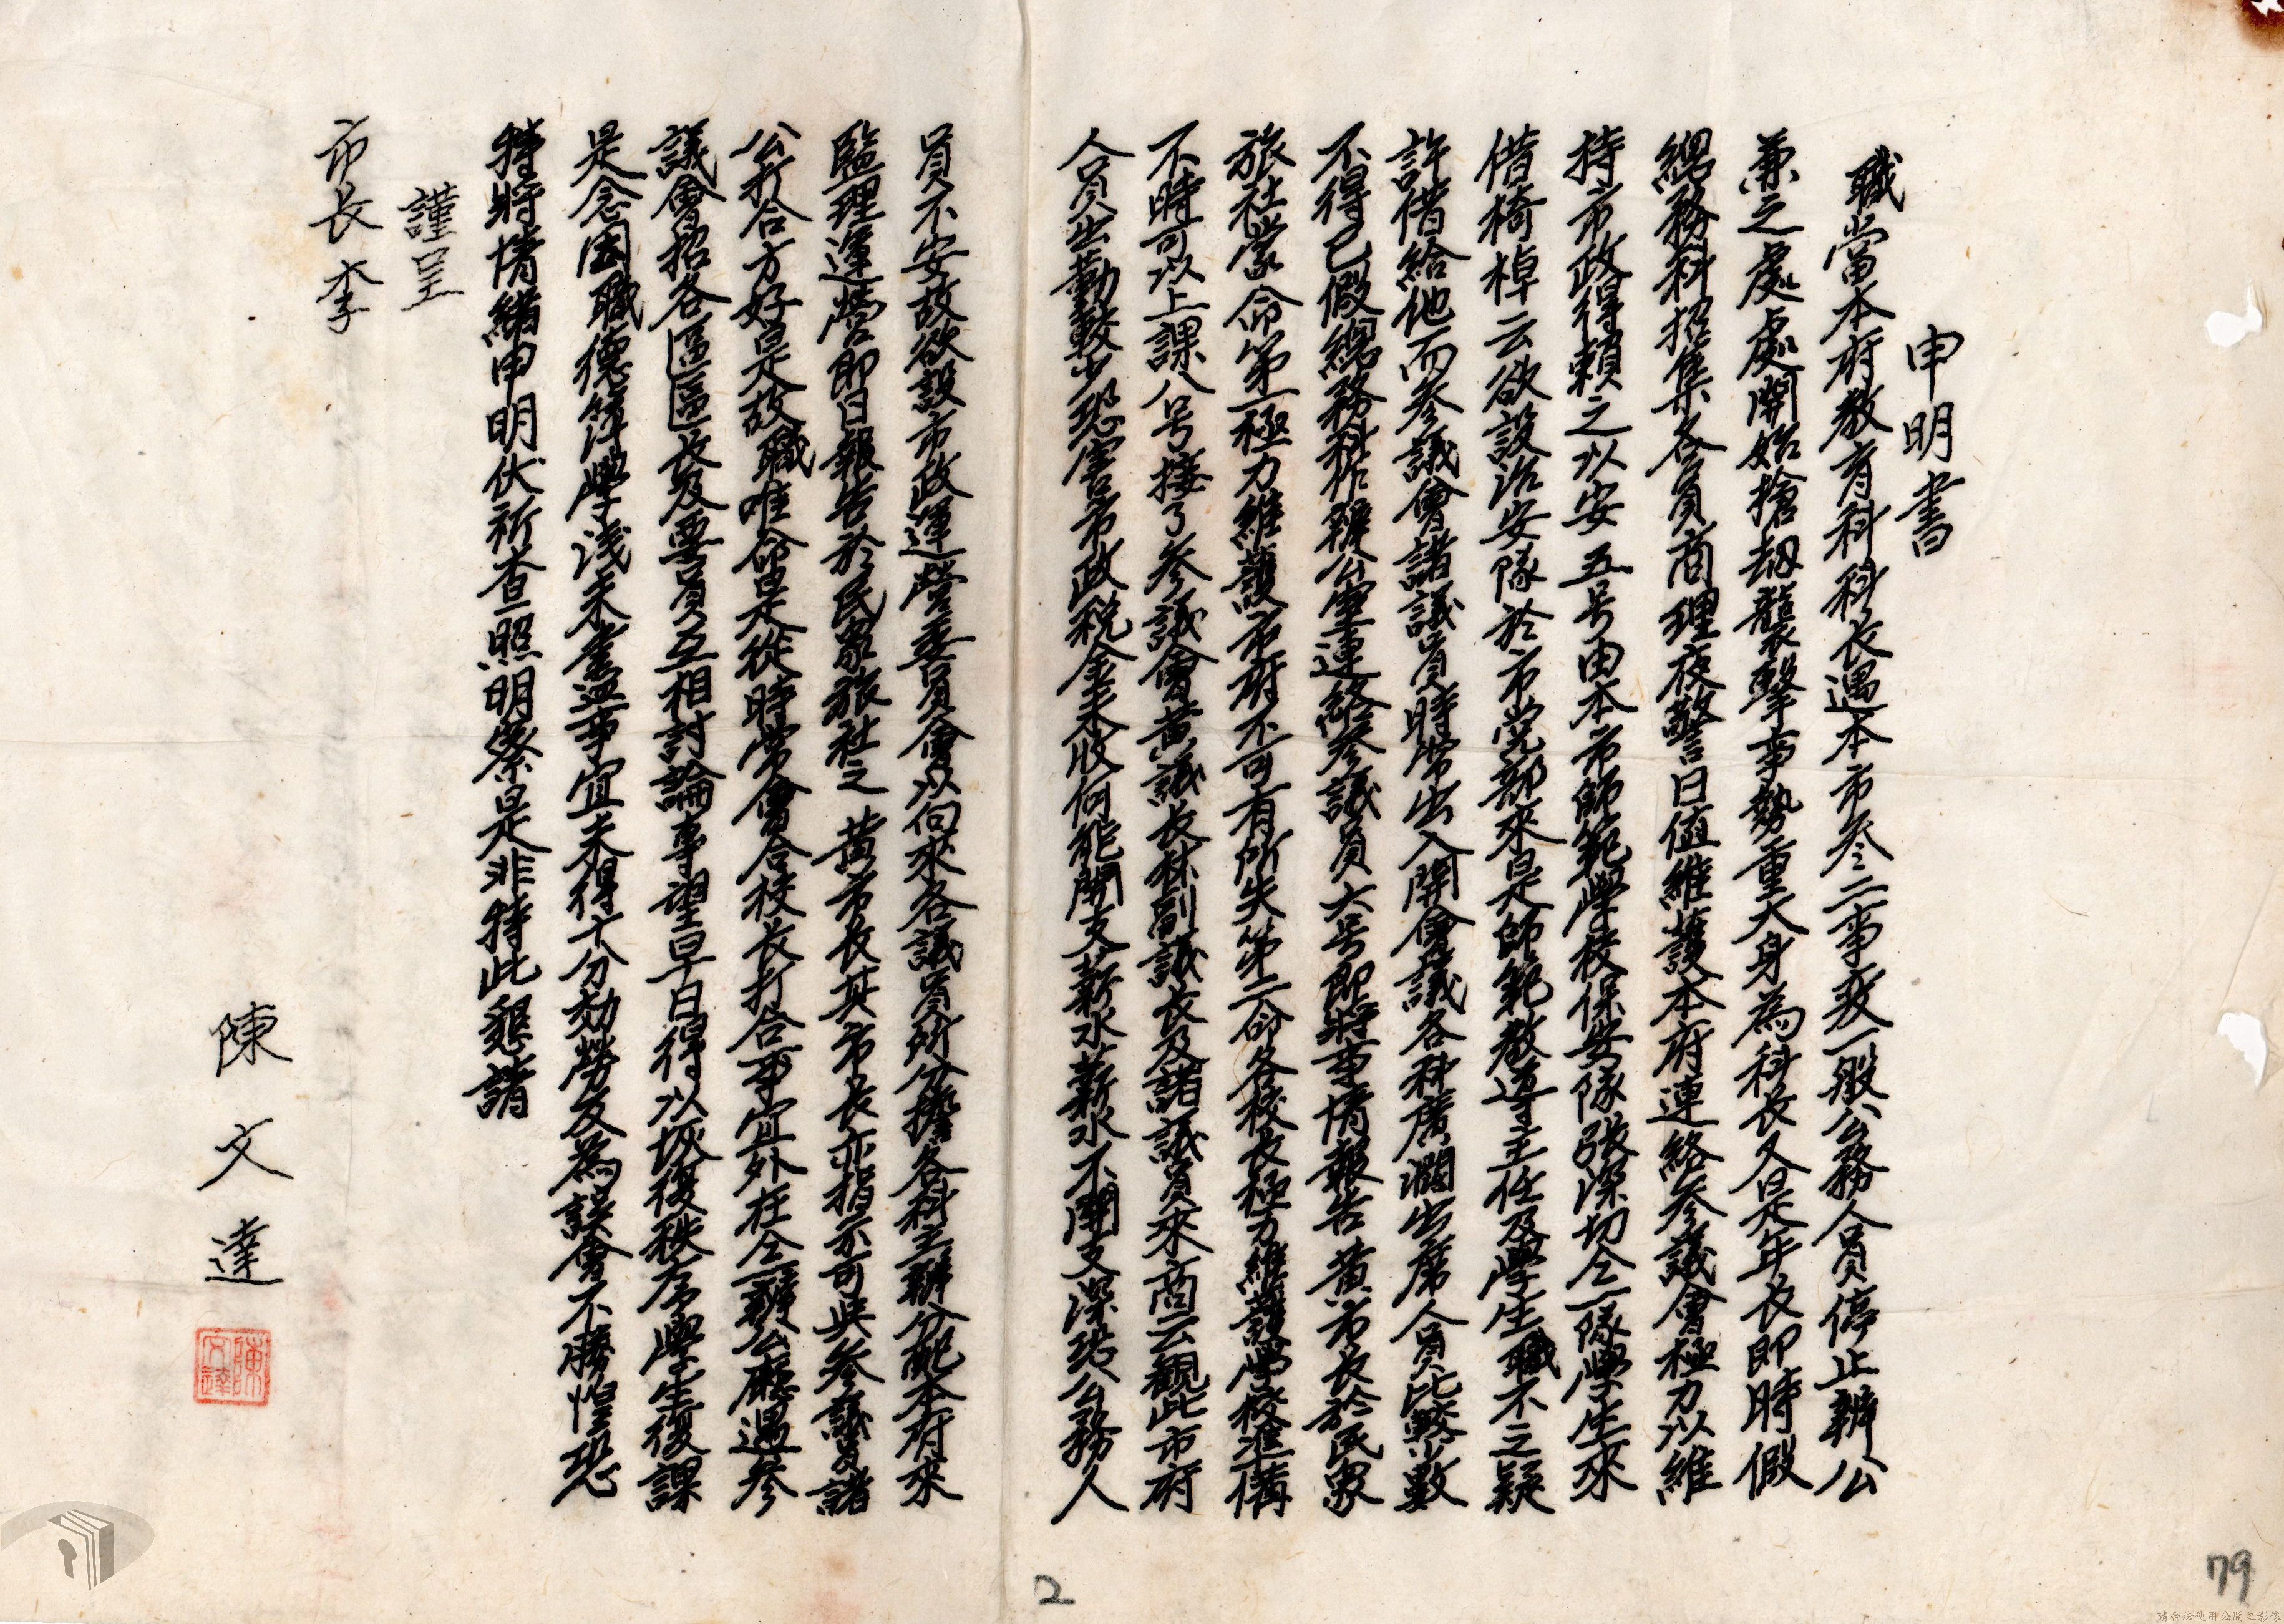 申明書
職當本府教育科科長遇本市参二事變一般公務人員停止辦公
兼之處處開始搶劫襲擊事勢重大身為科長又是年長即時假
總務科招集各員商理夜警日值維護本府連絡参議會極力以維
持市政得賴之以安五号由本市師範學校保安隊張深切仝一隊學生來
借椅棹云欲設治安隊於市党部來是師範教導主任及學生職不之疑
許借給他而参議會諸議員時常出入開會議各科廣濶出席人員比較少數
不得已假總務科作辦公室連絡参議員六号即將事情報告黃市長於民眾
旅社蒙命第一極力維護市府不可有所失第二命各校長極力維護學校準備
不時可以上課八号接了参議會黃議長林副議長及諸議員來商云觀此市府
人員出勤較少恐害市政税金未收何能開支薪水薪水不開支深恐公務人
員不安故欲設市政運營委員會以向來各議員所分擔各科主辦分配本府來
監理運營即日報告於民眾旅社之 黃市長其市長亦指示可與参議員諸
公打合方好是故職唯命是從時常會合校長打合事宜外在仝辦公廳遇参
議會招各區區長及要員互相討論事望早日得以恢復秩序學生復課
是念因職德薄學浅未盡事宜未得十分効勞反為誤會不勝惶恐
特將情緒申明伏祈查照明察是非特此懇請
謹呈
市長李
陳文達
陳文達
2
79
請合法使用公開之影像